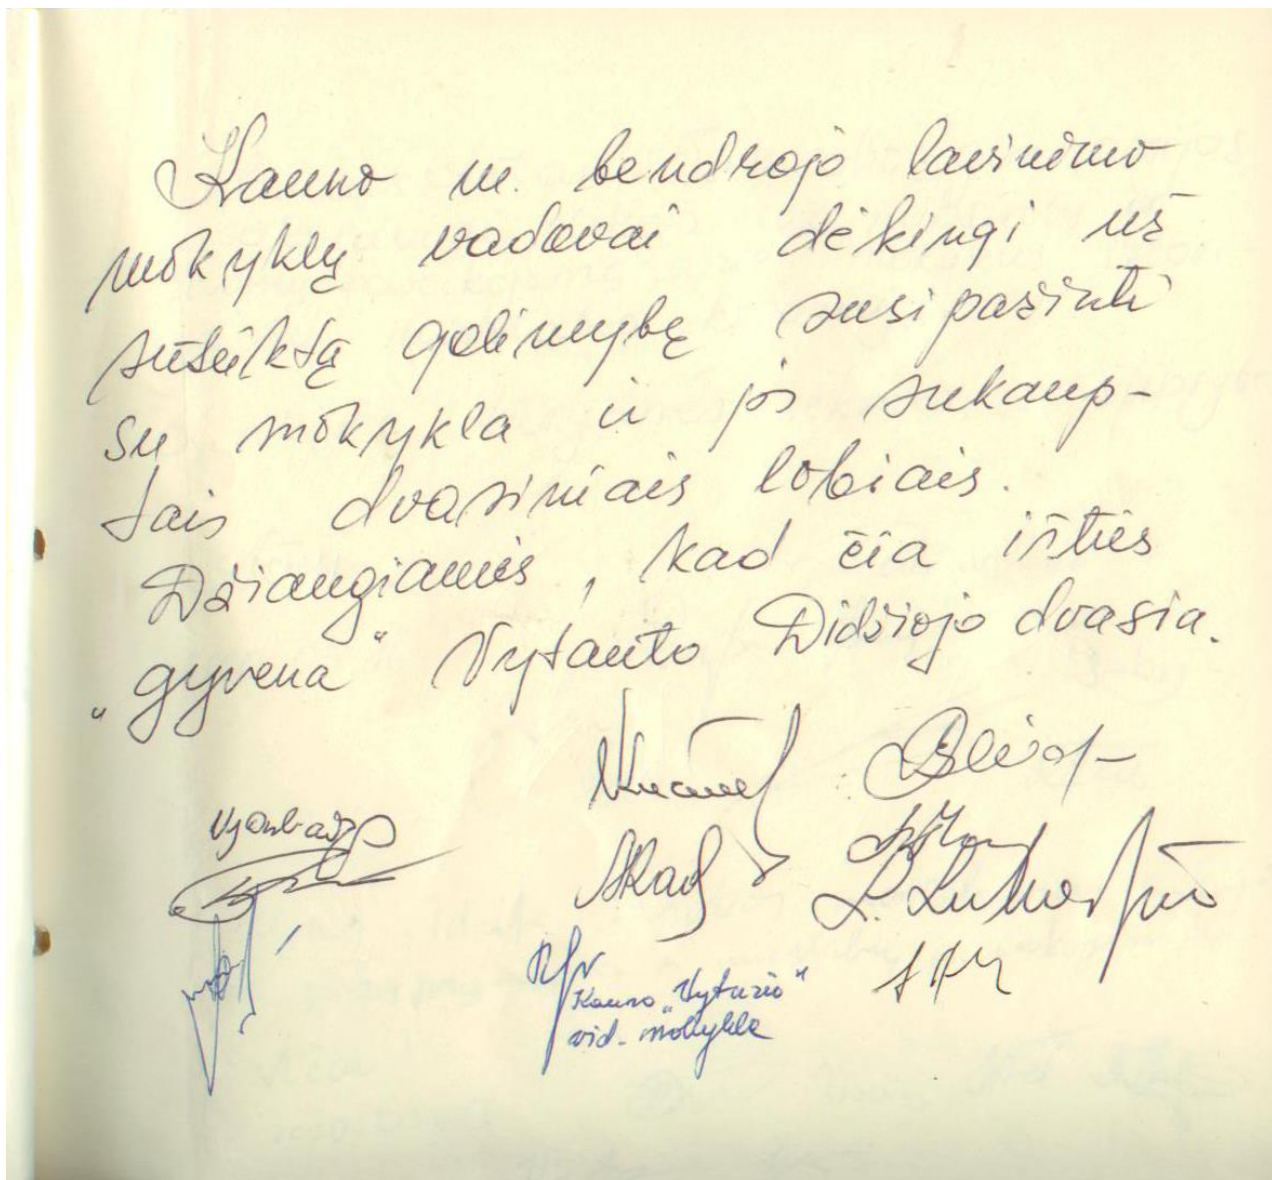 Kauno m. bendrojo lavinimo
mokyklų vadovai dėkingi už
suteiktą galimybę susipažinti
su mokykla ir jos sukaup-
tais dvasiniais lobiais.
Džiaugiamės, kad čia išties
„gyvena“ Vytauto Didžiojo dvasia.
Kauno „Vyturio“
vid. mokykla